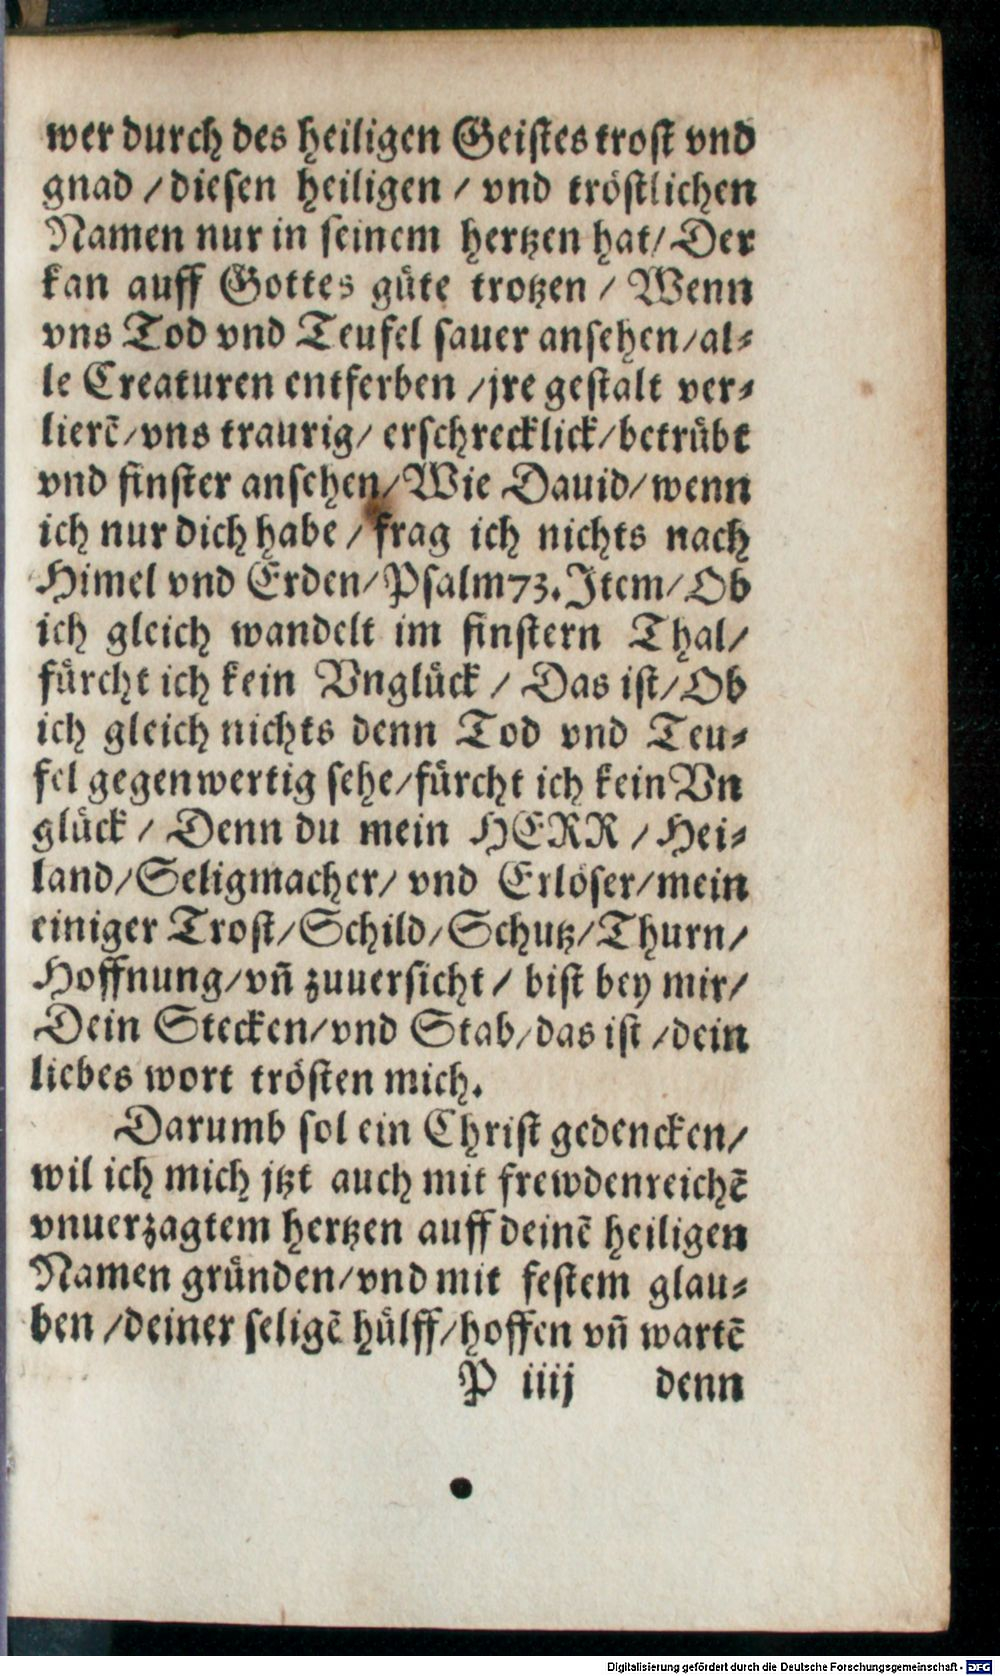 wer durch des heiligen Geistes trost vnd
gnad / diesen heiligen / vnd tröstlichen
Namen nur in seinem hertzen hat / Der
kan auff Gottes güte trotzen / Wenn
vns Tod vnd Teufel sauer ansehen / al-
le Creaturen entferben / jre gestalt ver-
lierẽ / vns traurig / erschrecklick / betrübt
vnd finster ansehen / Wie Dauid / wenn
ich nur dich habe / frag ich nichts nach
Himel vnd Erden / Psalm 73. Item / Ob
ich gleich wandelt im finstern Thal /
fürcht ich kein Vnglück / Das ist / Ob
ich gleich nichts denn Tod vnd Teu-
fel gegenwertig sehe / fürcht ich kein Vn
glück / Denn du mein HERR / Hei-
land / Seligmacher / vnd Erlöser / mein
einiger Trost / Schild / Schutz / Thurn /
Hoffnung / vñ zuuersicht / bist bey mir /
Dein Stecken / vnd Stab / das ist / dein
liebes wort trösten mich.
Darumb sol ein Christ gedencken /
wil ich mich jtzt auch mit frewdenreichẽ
vnuerzagtem hertzen auff deinẽ heiligen
Namen gründen / vnd mit festem glau-
ben / deiner seligẽ hülff / hoffen vñ wartẽ
P iiij denn
Digitalisierung gefördert durch die Deutsche Forschungsgemeinschaft - DFG